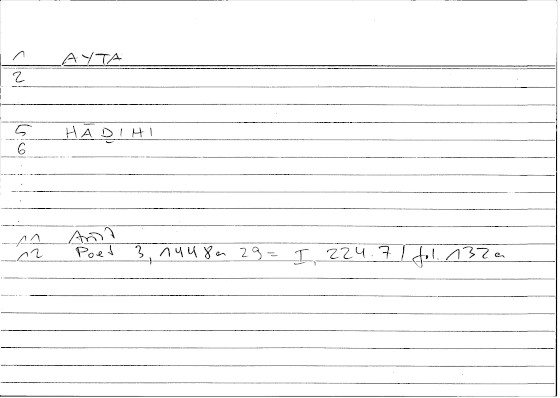 1 AYTA
2
5 HĀḎIHI
6
11 Arist
12 Poet 3, 1448a 29 = I, 224.7 / fol. 132a